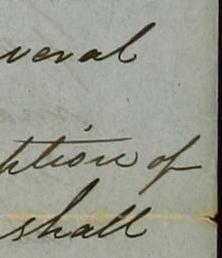 veral
tition of
shall